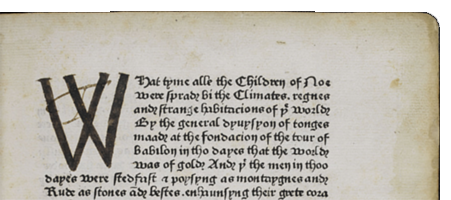 WHat tyme alle the Children of Noe
were sprad bi the Climates. regnes
and strange habitacions of þe world
By the general dyuysyon of tonges
maad at the fondacion of the tour of
Babilon in tho dayes that the world
was of gold And þt the men in thoo
dayes were stedfast & poysyng as montaygnes and
Rude as stones ād bestes. enhaunsyng their grete cora